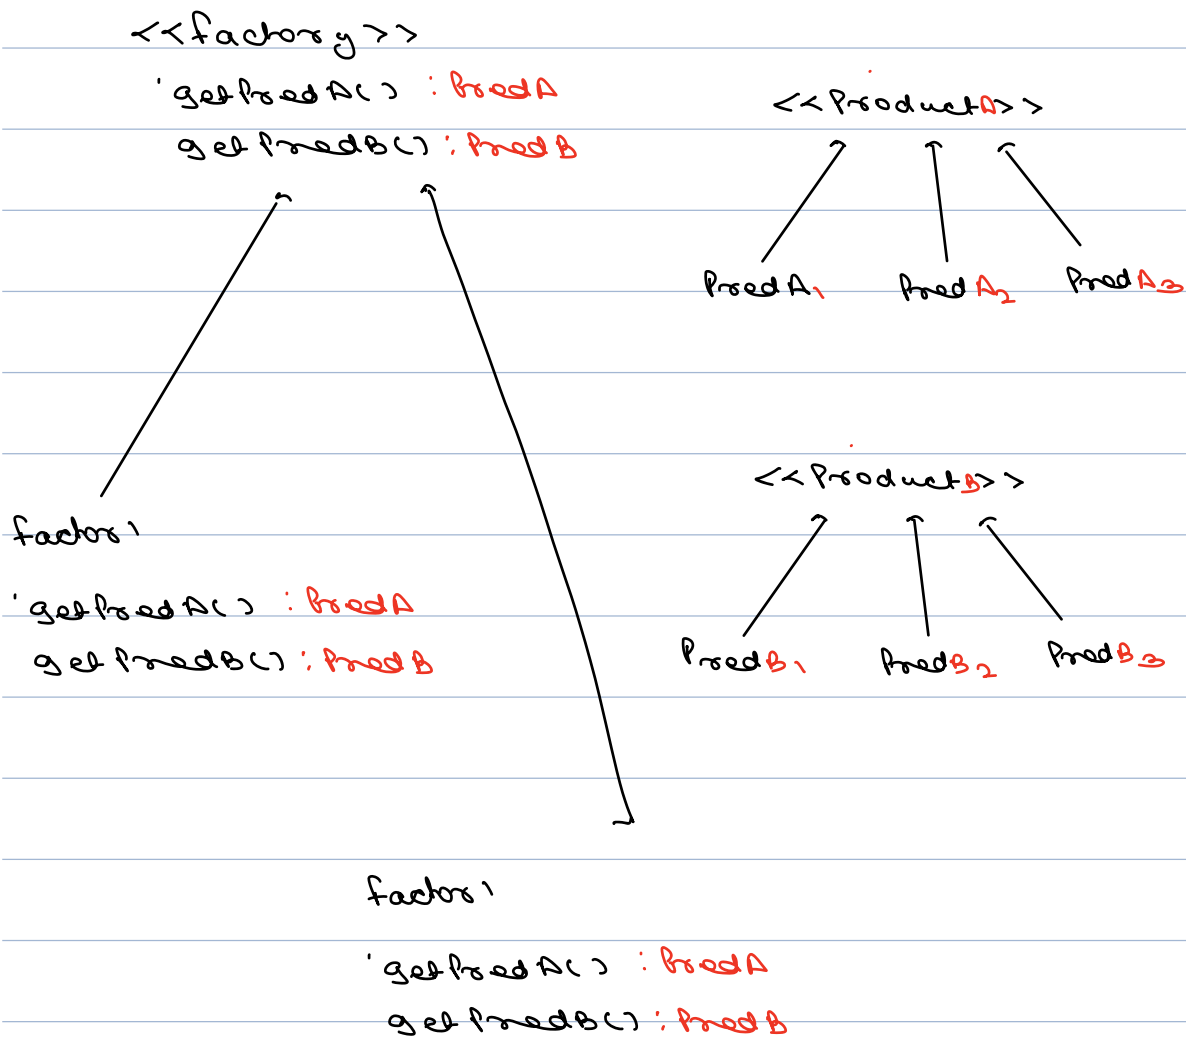 <<factory>>
getProdA() : ProdA
getProdB() : ProdB
<<ProductA>>
ProdA1 ProdA2 ProdA3
<<ProductB>>
ProdB1 ProdB2 ProdB3
factor1
getProdA() : ProdA
getProdB() : ProdB
factor1
getProdA() : ProdA
getProdB() : ProdB